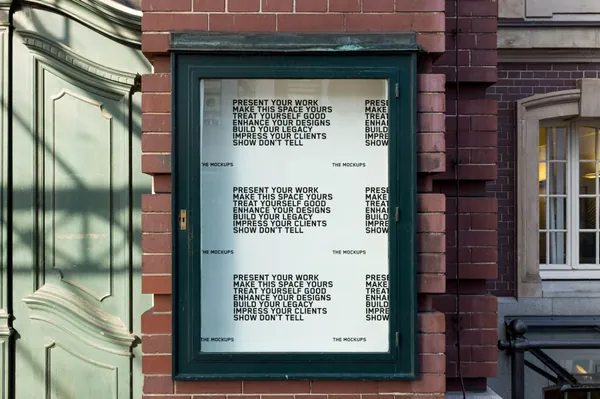 PRESENT YOUR WORK PRESE
MAKE THIS SPACE YOURS MAKE
TREAT YOURSELF GOOD TREAT
ENHANCE YOUR DESIGNS ENHAN
BUILD YOUR LEGACY BUILD
IMPRESS YOUR CLIENTS IMPRE
SHOW DON'T TELL SHOW
THE MOCKUPS THE MOCKUPS
PRESENT YOUR WORK PRESE
MAKE THIS SPACE YOURS MAKE
TREAT YOURSELF GOOD TREAT
ENHANCE YOUR DESIGNS ENHAN
BUILD YOUR LEGACY BUILD
IMPRESS YOUR CLIENTS IMPRE
SHOW DON'T TELL SHOW
THE MOCKUPS THE MOCKUPS
PRESENT YOUR WORK PRESE
MAKE THIS SPACE YOURS MAKE
TREAT YOURSELF GOOD TREAT
ENHANCE YOUR DESIGNS ENHAN
BUILD YOUR LEGACY BUILD
IMPRESS YOUR CLIENTS IMPRE
SHOW DON'T TELL SHOW
THE MOCKUPS THE MOCKUPS